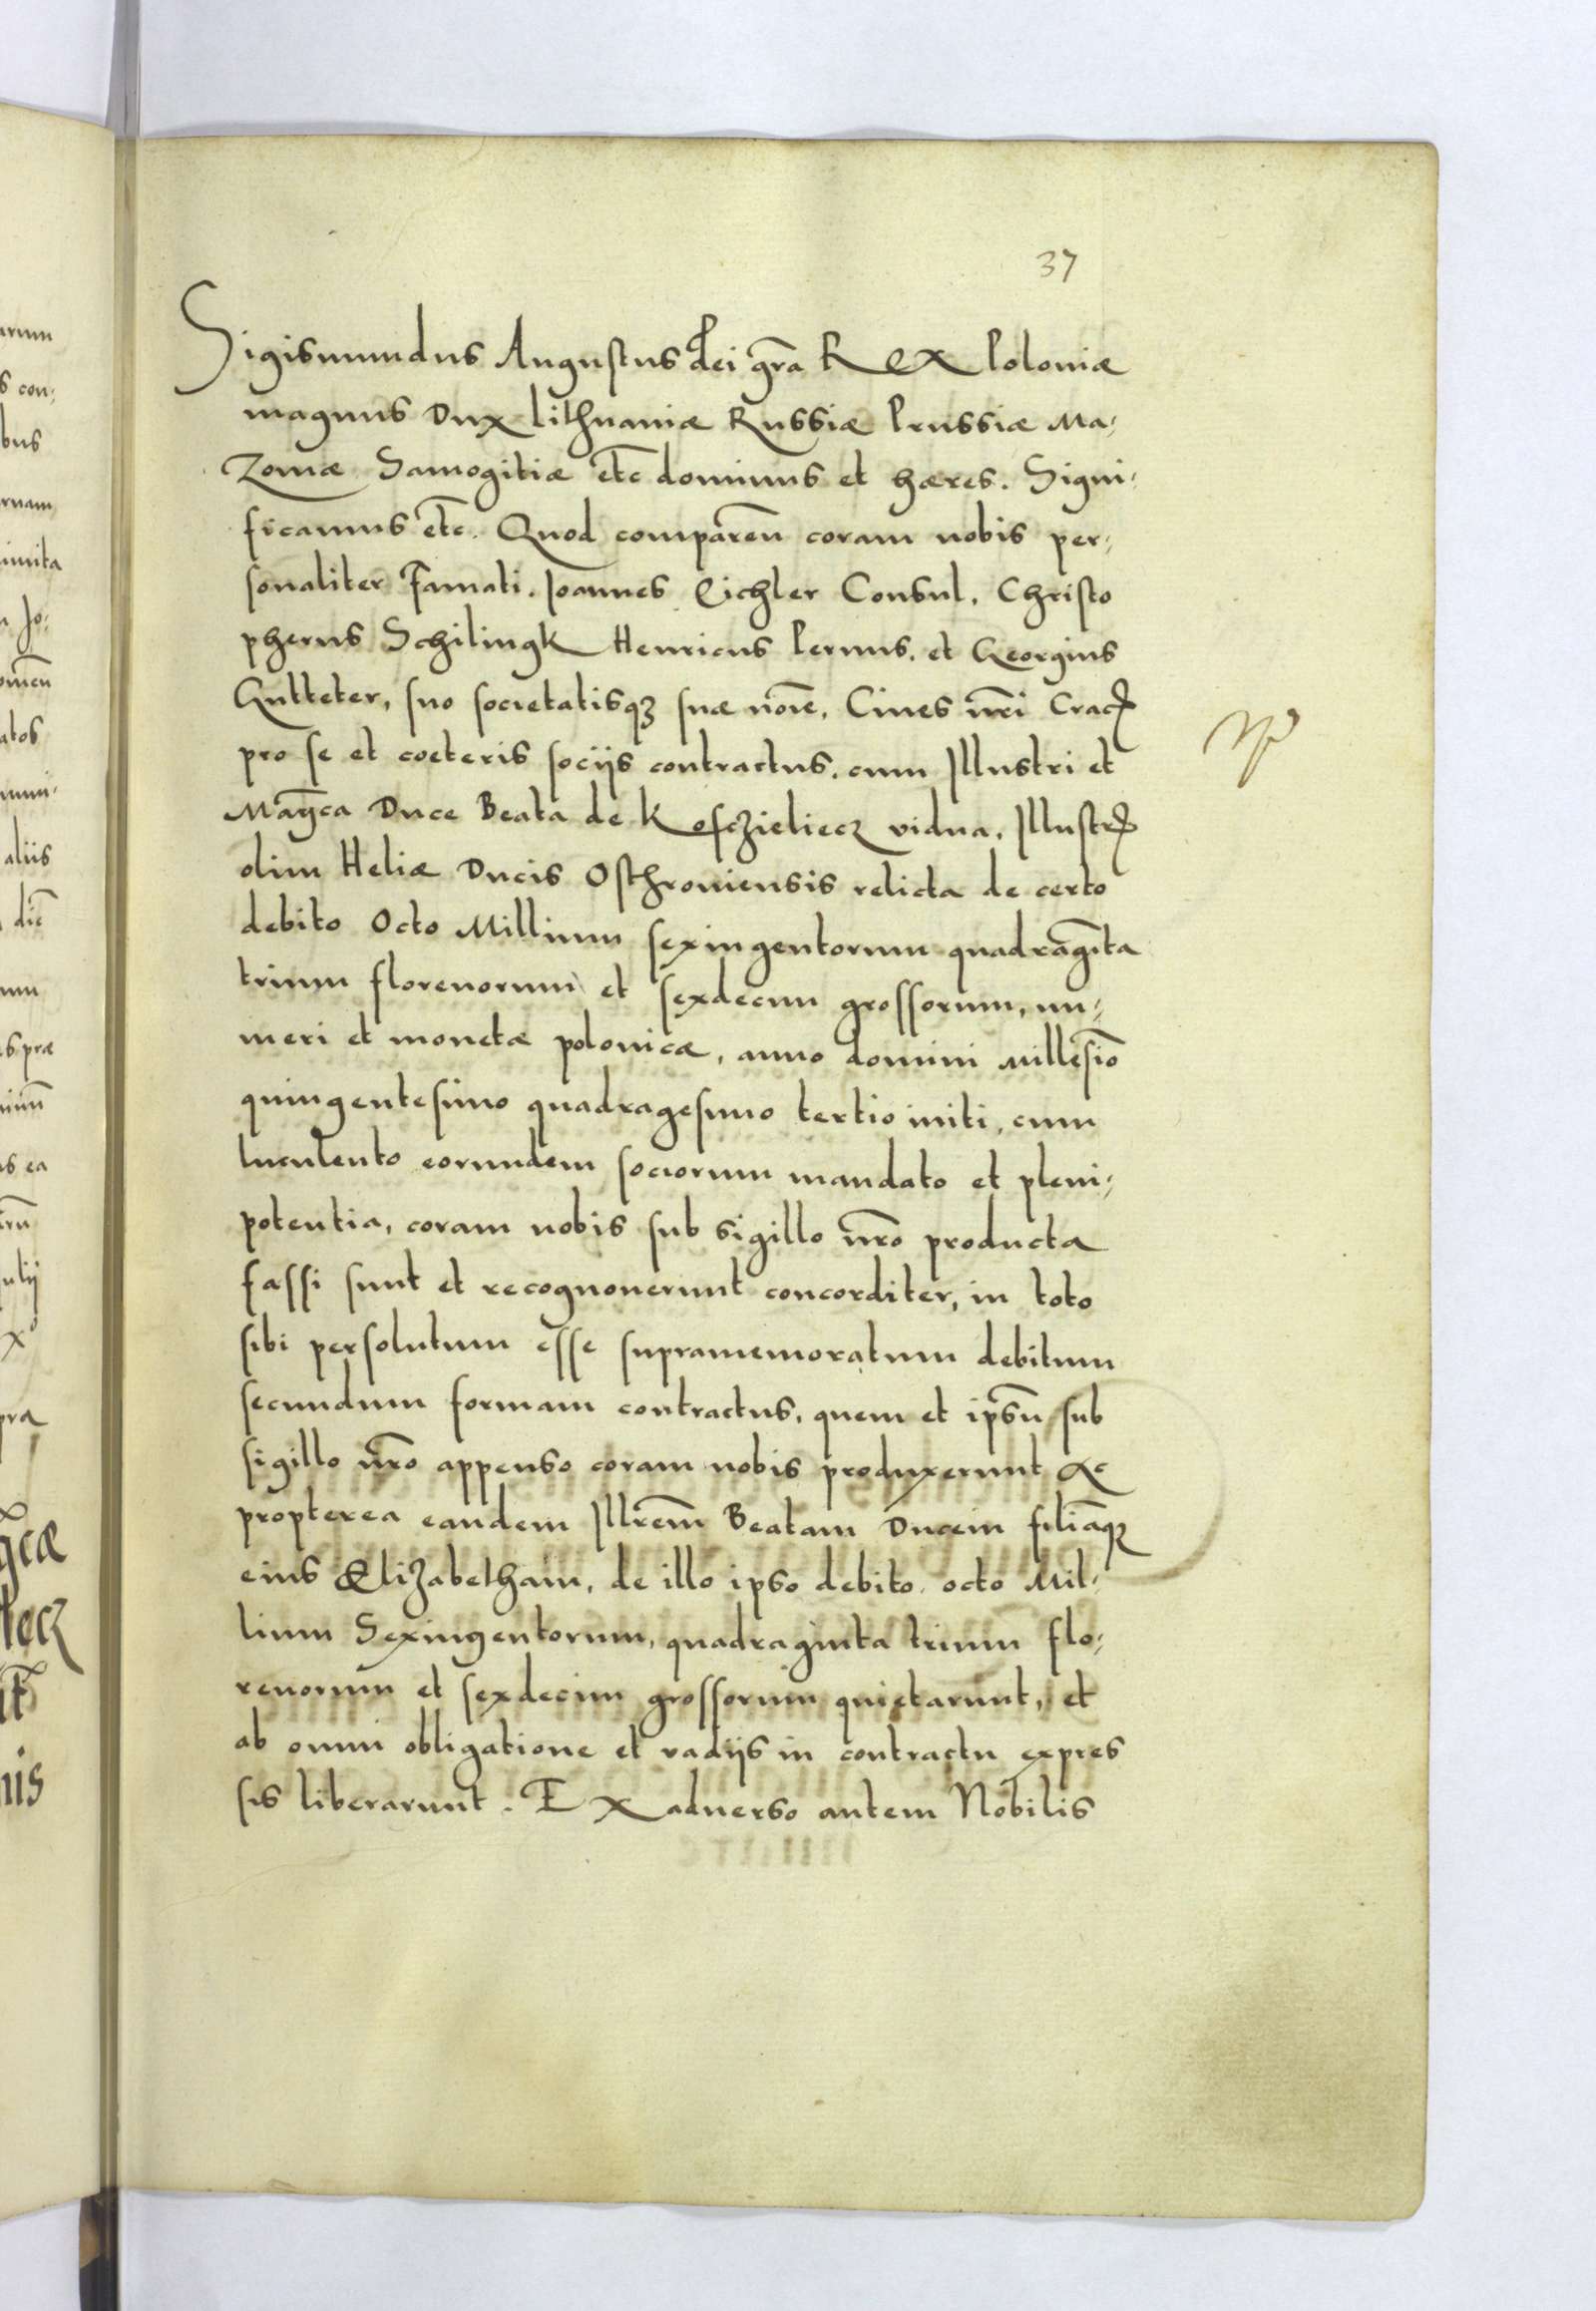 37
Sigismundus Augustus Dei gr̃a Rex Poloniæ
magnus Dux Lithuaniæ Russiæ Prussiæ Ma-
zoviæ Samogitiæ etc̃ dominus et hæres. Signi-
ficamus etc̃. Quod comparen̄ coram nobis per-
sonaliter Famati. Joannes Eichler Consul, Christo
pherus Schilingk Henricus Pernus, et Georgius
Gutteter, suo societatisqꝫ suæ noīe, Ciues nr̃i Crac̃
pro se et coeteris socijs contractus, cum Illustri et
Mag̃ca Duce Beata de Kosczieliecz vidua, Illustr̃
olim Heliæ Ducis Osthroviensis relicta de certo
debito Octo Millium sexingentorum quadrag̃ita
trium florenorum et sexdecim grossorum, nu-
meri et monetæ polonicæ, anno domini Millesīo
quingentesimo quadragesimo tertio initi, cum
luculento eorundem sociorum mandato et pleni-
potentia, coram nobis sub sigillo nr̃o producta
fassi sunt et recognouerunt concorditer, in toto
sibi persolutum esse supramemoratum debitum
secundum formam contractus, quem et ipsũ sub
sigillo nr̃o appenso coram nobis produxerunt ac
propterea eandem Illr̃em Beatam Ducem filiāqꝫ
eius Elizabetham, de illo ipso debito octo Mil-
lium Sexingentorum, quadraginta trium flo-
renorum et sexdecim grossorum quietarunt, et
ab omni obligatione et vadijs in contractu expres
sis liberarunt. Ex aduerso autem Nobilis